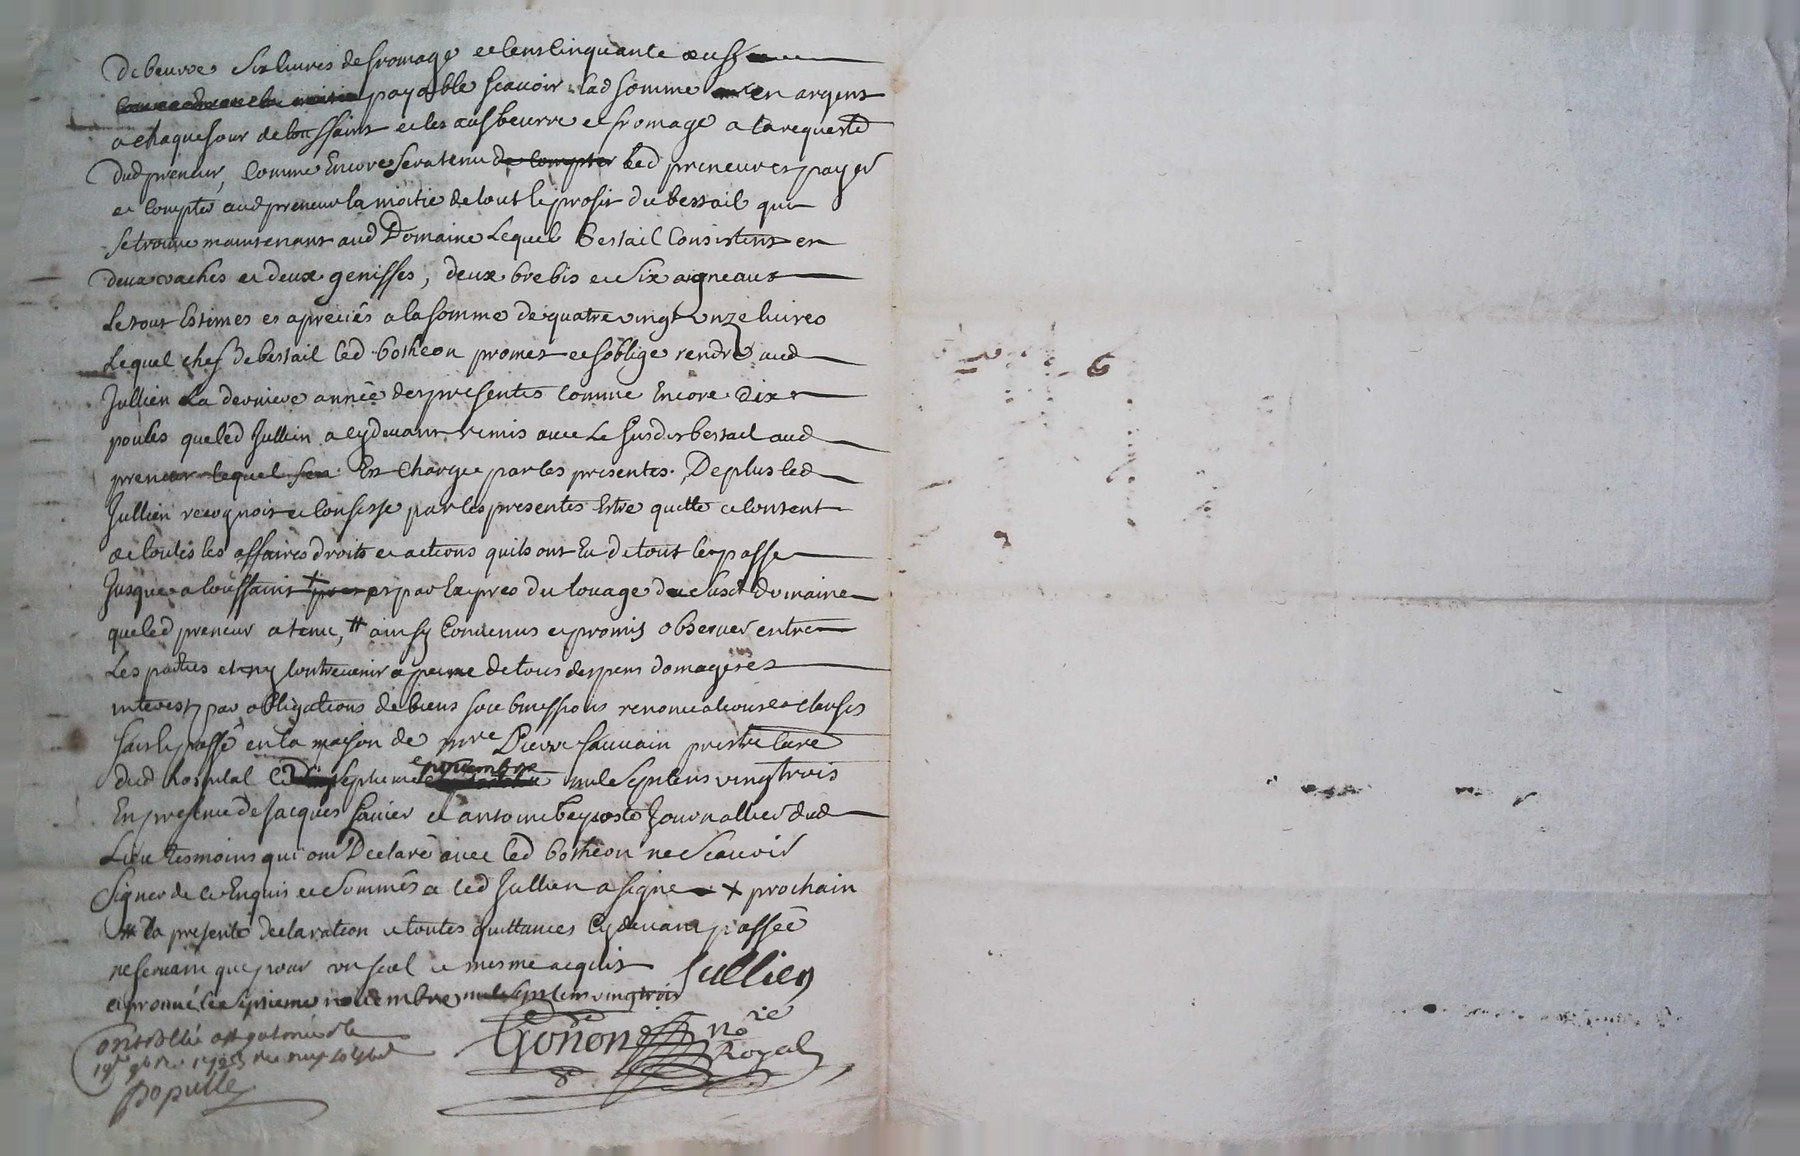 De beurre six livres de fromage et cent cinquante œufs
payable scauoir lad somme en argent
a chaque jour de toussaint et les œufs beurre et fromage a la requeste
Dud preneur, comme Encore sera tenu de compter led preneur et payer
et compter aud preneur la moitie de tout le profit du bestail qui
se trouve maintenant aud Domaine Lequel bestail Consistent en
deux vaches et deux genisses, deux brebis et six aigneaux
Le tout Estimes et apreciés a la somme de quatre vingt unze livres
Lequel chef de bestail led botheon promet et soblige rendre aud
Jullien La derniere année des presentes comme Encore Dix
poules que led Jullien a cy devant remis avec Le susdit bestail aud
preneur lequel sera Est Chargé par les presentes. De plus led
Jullien recognoit et confesse par les presentes Estre quitte et content
de toutes les affaires droits et actions quils ont Eu de tout le passe
Jusque a toussaint + et par exprès du louage du susd Domaine
que led preneur a tenu, # ainsy Convenus et promis observer entre
Les parties et ny contrevenir a peine de tous despens domages et
interest par obligations de biens soubmissions renonciations et clauses
fait et passé en la maison de mre Pierre Sauvain prestre curé
dud hospital le septieme novembre mil sept cens vingt trois
En presence de Jacques Janier et antoine Journallier dud
Lieu tesmoins qui ont Declaré avec led botheon ne Scavoir
Signer de ce Enquis et Sommés et led Jullien a signe + prochain
# la presente declaration et toutes quittances cy devant passée
ne servant que pour un seul et mesme acquit Jullien
aprouvé le septieme novembre mil sept cens vingt trois
Gonon nore Royal
Controllé
19e 9bre 1723
populle